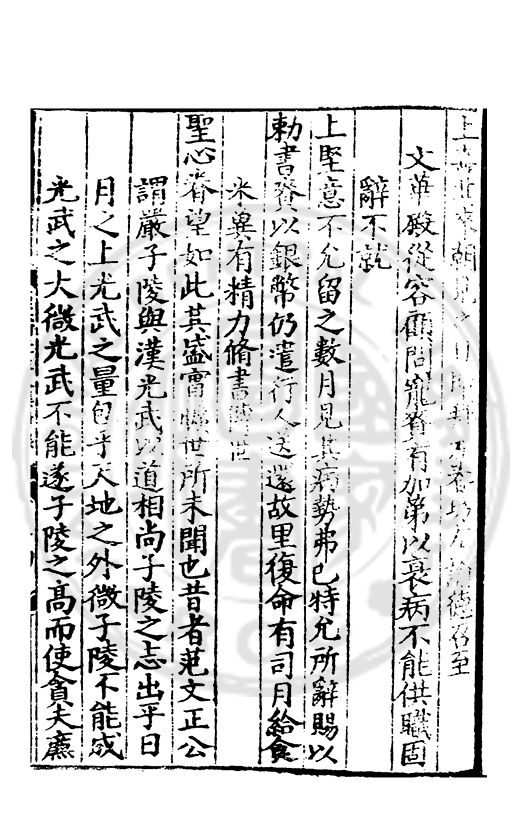 上朝見之日春坊左諭德召至
文華殿從容顧問寵賚有加第以衰病不能供職固
辭不就
上堅意不允留之數月見其病勢弗已特允所辭賜以
勅書賚以銀幣仍遣行人送還故里復命有司月給食
米冀有精力脩書傳世
聖心眷望如此其盛實曠世所未聞也昔者范文正公
謂嚴子陵與漢光武以道相尚子陵之志出乎日
月之上光武之量包乎天地之外微子陵不能成
光武之大微光武不能遂子陵之高而使貪夫廉